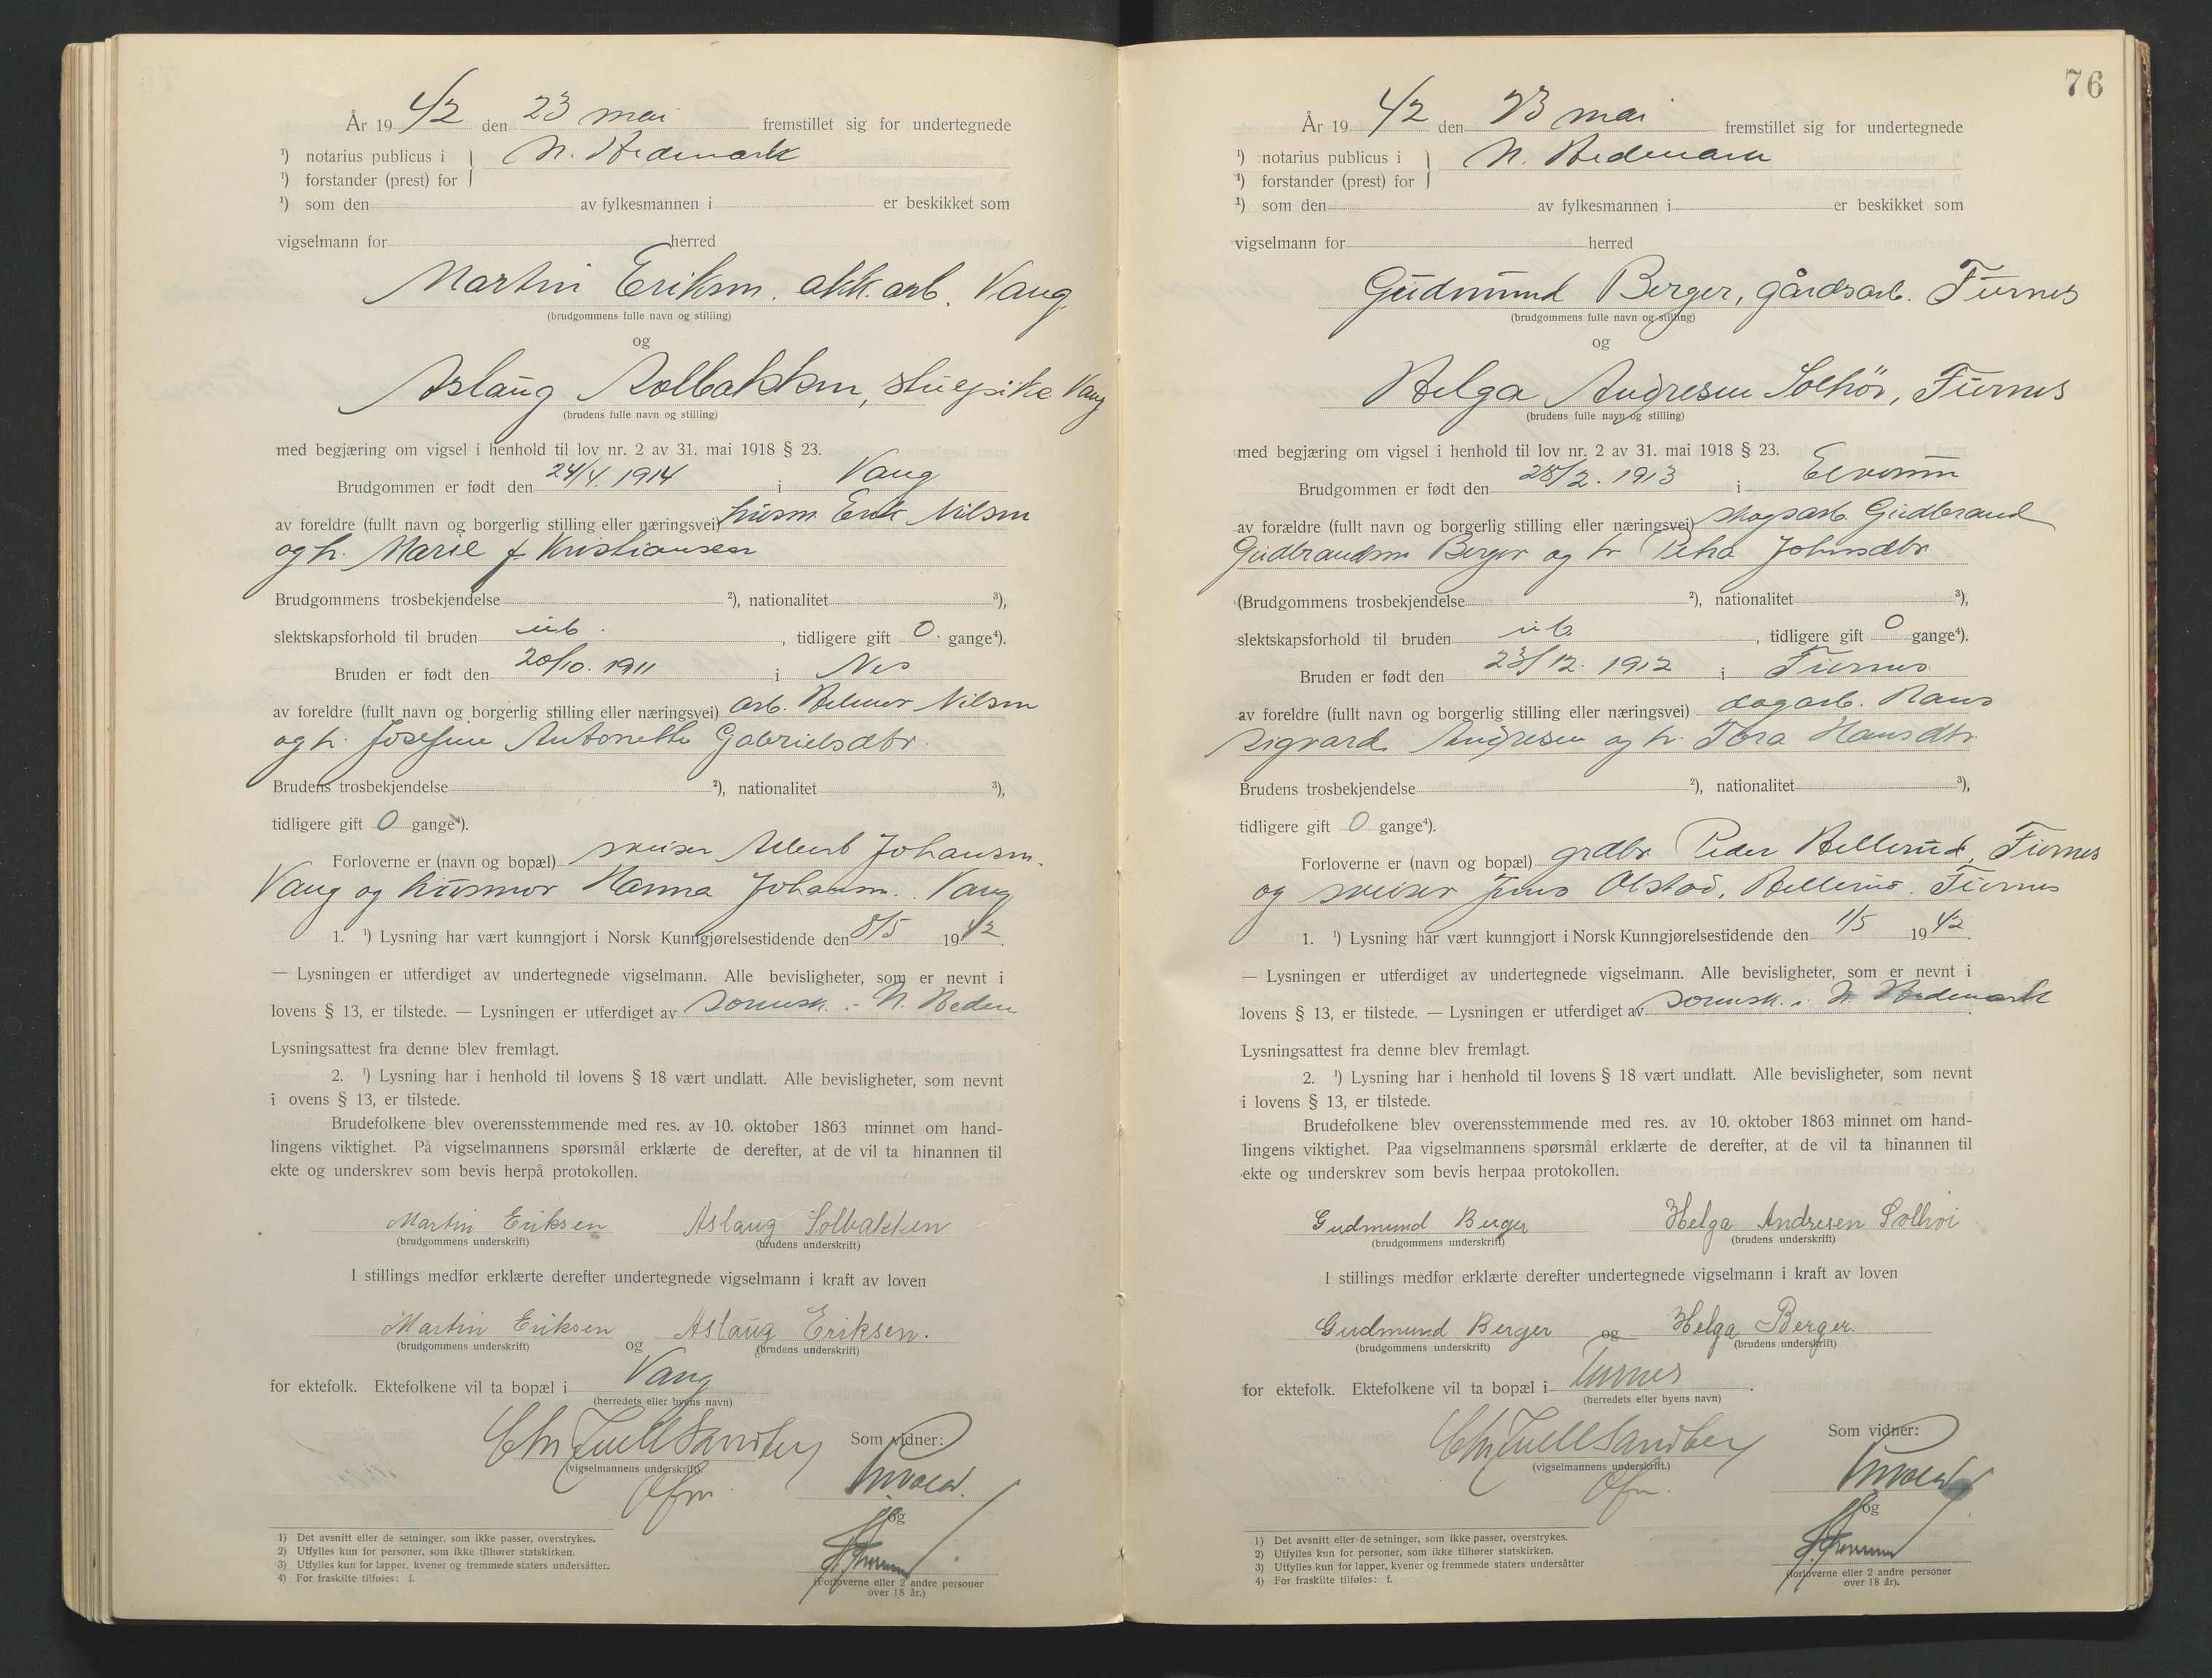 År 19 42 den 23 mai fremstillet sig for undertegnede
¹) notarius publicus i } N. Hedemark
¹) forstander (prest) for
¹) som den av fylkesmannen i er beskikket som
vigselmann for herred
Martin Eriksen, akk.arb. Vang
(brudgommens fulle navn og stilling)
og
Aslaug Solbakken, stuepike Vang
(brudens fulle navn og stilling)
med begjæring om vigsel i henhold til lov nr. 2 av 31. mai 1918 § 23.
Brudgommen er født den 24/4. 1914 i Vang
av foreldre (fullt navn og borgerlig stilling eller næringsvei) husm Erik Nilsen
og h. Marie f. Kristiansen
Brudgommens trosbekjendelse ²), nationalitet ³),
slektskapsforhold til bruden ub. , tidligere gift 0 gange⁴).
Bruden er født den 20/10. 1911 i Nes
av foreldre (fullt navn og borgerlig stilling eller næringsvei) arb. Helmer Nilsen
og h. Josefine Antonette Gabrielsdtr.
Brudens trosbekjendelse ²), nationalitet ³),
tidligere gift 0 gange⁴).
Forloverne er (navn og bopæl) sveiser Albert Johansen.
Vang og husmor Hanna Johansen. Vang
1. ¹) Lysning har vært kunngjort i Norsk Kunngjørelsestidende den 8/5 19 42.
— Lysningen er utferdiget av undertegnede vigselmann. Alle bevisligheter, som er nevnt i
lovens § 13, er tilstede. — Lysningen er utferdiget av sorensk. i N. Hedem
Lysningsattest fra denne blev fremlagt.
2. ¹) Lysning har i henhold til lovens § 18 vært undlatt. Alle bevisligheter, som nevnt
i ovens § 13, er tilstede.
Brudefolkene blev overensstemmende med res. av 10. oktober 1863 minnet om hand-
lingens viktighet. På vigselmannens spørsmål erklærte de derefter, at de vil ta hinannen til
ekte og underskrev som bevis herpå protokollen.
Martin Eriksen Aslaug Solbakken
(brudgommens underskrift) (brudens underskrift)
I stillings medfør erklærte derefter undertegnede vigselmann i kraft av loven
Martin Eriksen og Aslaug Eriksen.
(brudgommens underskrift) (brudens underskrift)
for ektefolk. Ektefolkene vil ta bopæl i Vang
(herredets eller byens navn)
Chr Juell Sandberg Som vidner:
(vigselmannens underskrift).
og
(Forloverne eller 2 andre personer
over 18 år.)
1) Det avsnitt eller de setninger, som ikke passer, overstrykes.
2) Utfylles kun for personer, som ikke tilhører statskirken.
3) Utfylles kun for lapper, kvener og fremmede staters undersåtter.
4) For fraskilte tilføies: f.
76
År 19 42 den 23 mai fremstillet sig for undertegnede
¹) notarius publicus i } N. Hedemark
¹) forstander (prest) for
¹) som den av fylkesmannen i er beskikket som
vigselmann for herred
Gudmund Berger, gårdsarb. Furnes
(brudgommens fulle navn og stilling)
og
Helga Andresen Solhøi, Furnes
(brudens fulle navn og stilling)
med begjæring om vigsel i henhold til lov nr. 2 av 31. mai 1918 § 23.
Brudgommen er født den 28/2. 1913 i Elverum
av forældre (fullt navn og borgerlig stilling eller næringsvei) skogsarb. Gudbrand
Gudbrandsen Berger og h Petra Johnsdtr
(Brudgommens trosbekjendelse ²), nationalitet ³),
slektskapsforhold til bruden ub , tidligere gift 0 gange⁴).
Bruden er født den 23/12. 1912 i Furnes
av foreldre (fullt navn og borgerlig stilling eller næringsvei) dagarb. Hans
Sigvard Andresen og h. Tora Hansdtr
Brudens trosbekjendelse ²), nationalitet ³),
tidligere gift 0 gange⁴).
Forloverne er (navn og bopæl) grdbr Peder Hellerud, Furnes
og sveiser Jens Olstad, Hellerud. Furnes
1. ¹) Lysning har vært kunngjort i Norsk Kunngjørelsestidende den 1/5 19 42.
— Lysningen er utferdiget av undertegnede vigselmann. Alle bevisligheter, som er nevnt i
lovens § 13, er tilstede. — Lysningen er utferdiget av sorensk. i N. Hedemark
Lysningsattest fra denne blev fremlagt.
2. ¹) Lysning har i henhold til lovens § 18 vært undlatt. Alle bevisligheter, som nevnt
i lovens § 13, er tilstede.
Brudefolkene blev overensstemmende med res. av 10. oktober 1863 minnet om hand-
lingens viktighet. Paa vigselmannens spørsmål erklærte de derefter, at de vil ta hinannen til
ekte og underskrev som bevis herpaa protokollen.
Gudmund Berger Helga Andresen Solhøi
(brudgommens underskrift) (brudens underskrift)
I stillings medfør erklærte derefter undertegnede vigselmann i kraft av loven
Gudmund Berger og Helga Berger.
(brudgommens underskrift) (brudens underskrift)
for ektefolk. Ektefolkene vil ta bopæl i Furnes.
(herredets eller byens navn)
Chr Juell Sandberg Som vidner:
(vigselmannens underskrift.)
og
(forloverne eller 2 andre personer
over 18 år).
1) Det avsnitt eller de setninger, som ikke passer, overstrykes.
2) Utfylles kun for personer, som ikke tilhører statskirken.
3) Utfylles kun for lapper, kvener og fremmede staters undersåtter
4) For fraskilte tilføies: f.